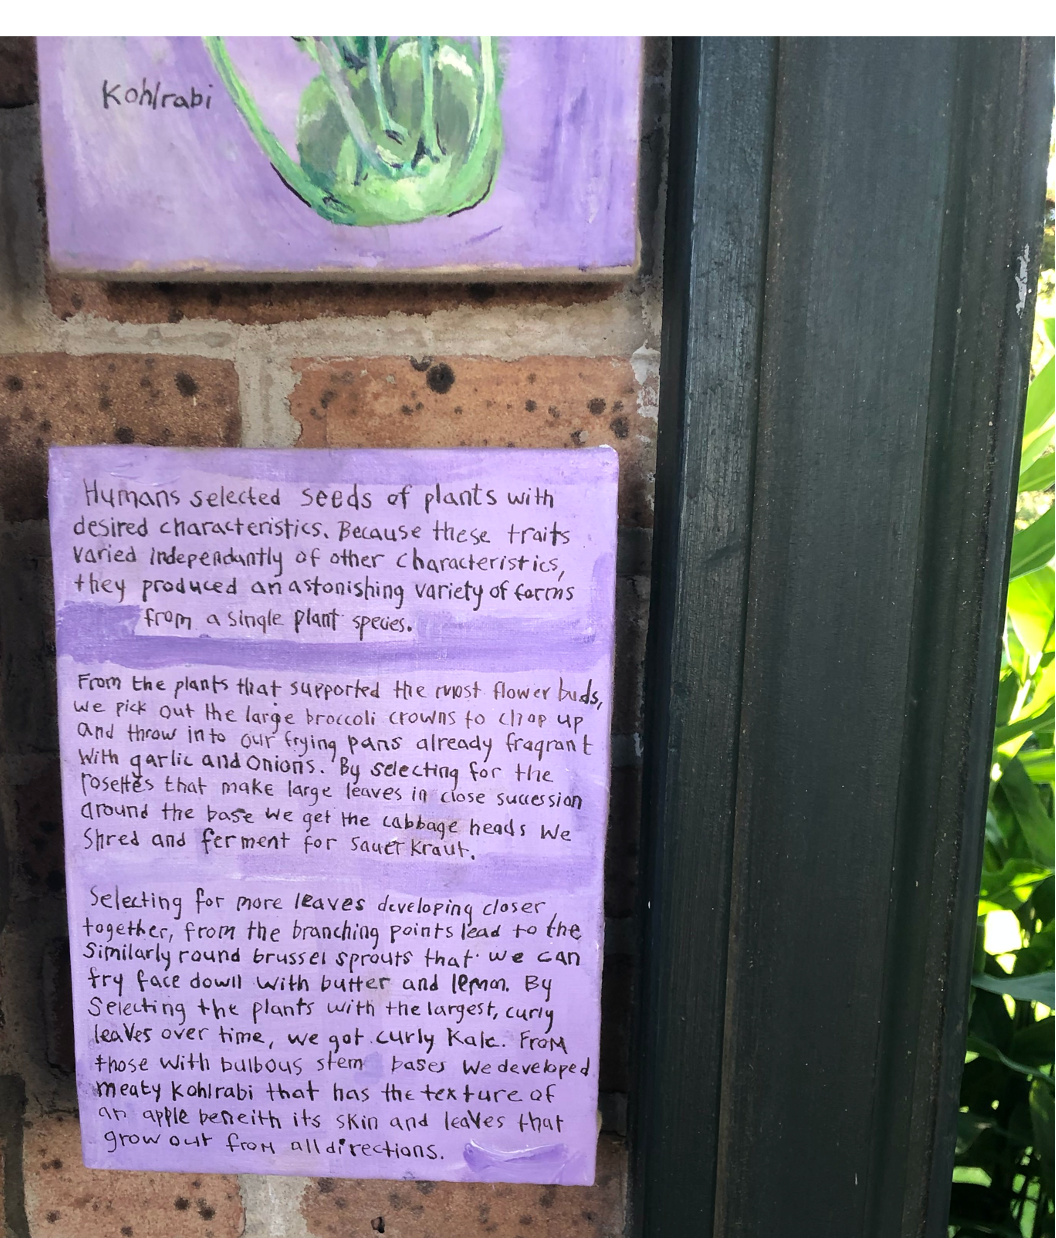 Kohlrabi
Humans selected seeds of plants with
desired characteristics. Because these traits
varied independantly of other characteristics,
they produced an astonishing variety of forms
from a single plant species.
From the plants that supported the most flower buds,
we pick out the large broccoli crowns to chop up
and throw into our frying pans already fragrant
with garlic and onions. By selecting for the
rosettes that make large leaves in close succession
around the base we get the cabbage heads we
shred and ferment for sauerkraut.
Selecting for more leaves developing closer
together, from the branching points lead to the
similarly round brussel sprouts that we can
fry face down with butter and lemon. By
selecting the plants with the largest, curly
leaves over time, we got curly Kale. From
those with bulbous stem bases we developed
meaty Kohlrabi that has the texture of
an apple beneith its skin and leaves that
grow out from all directions.